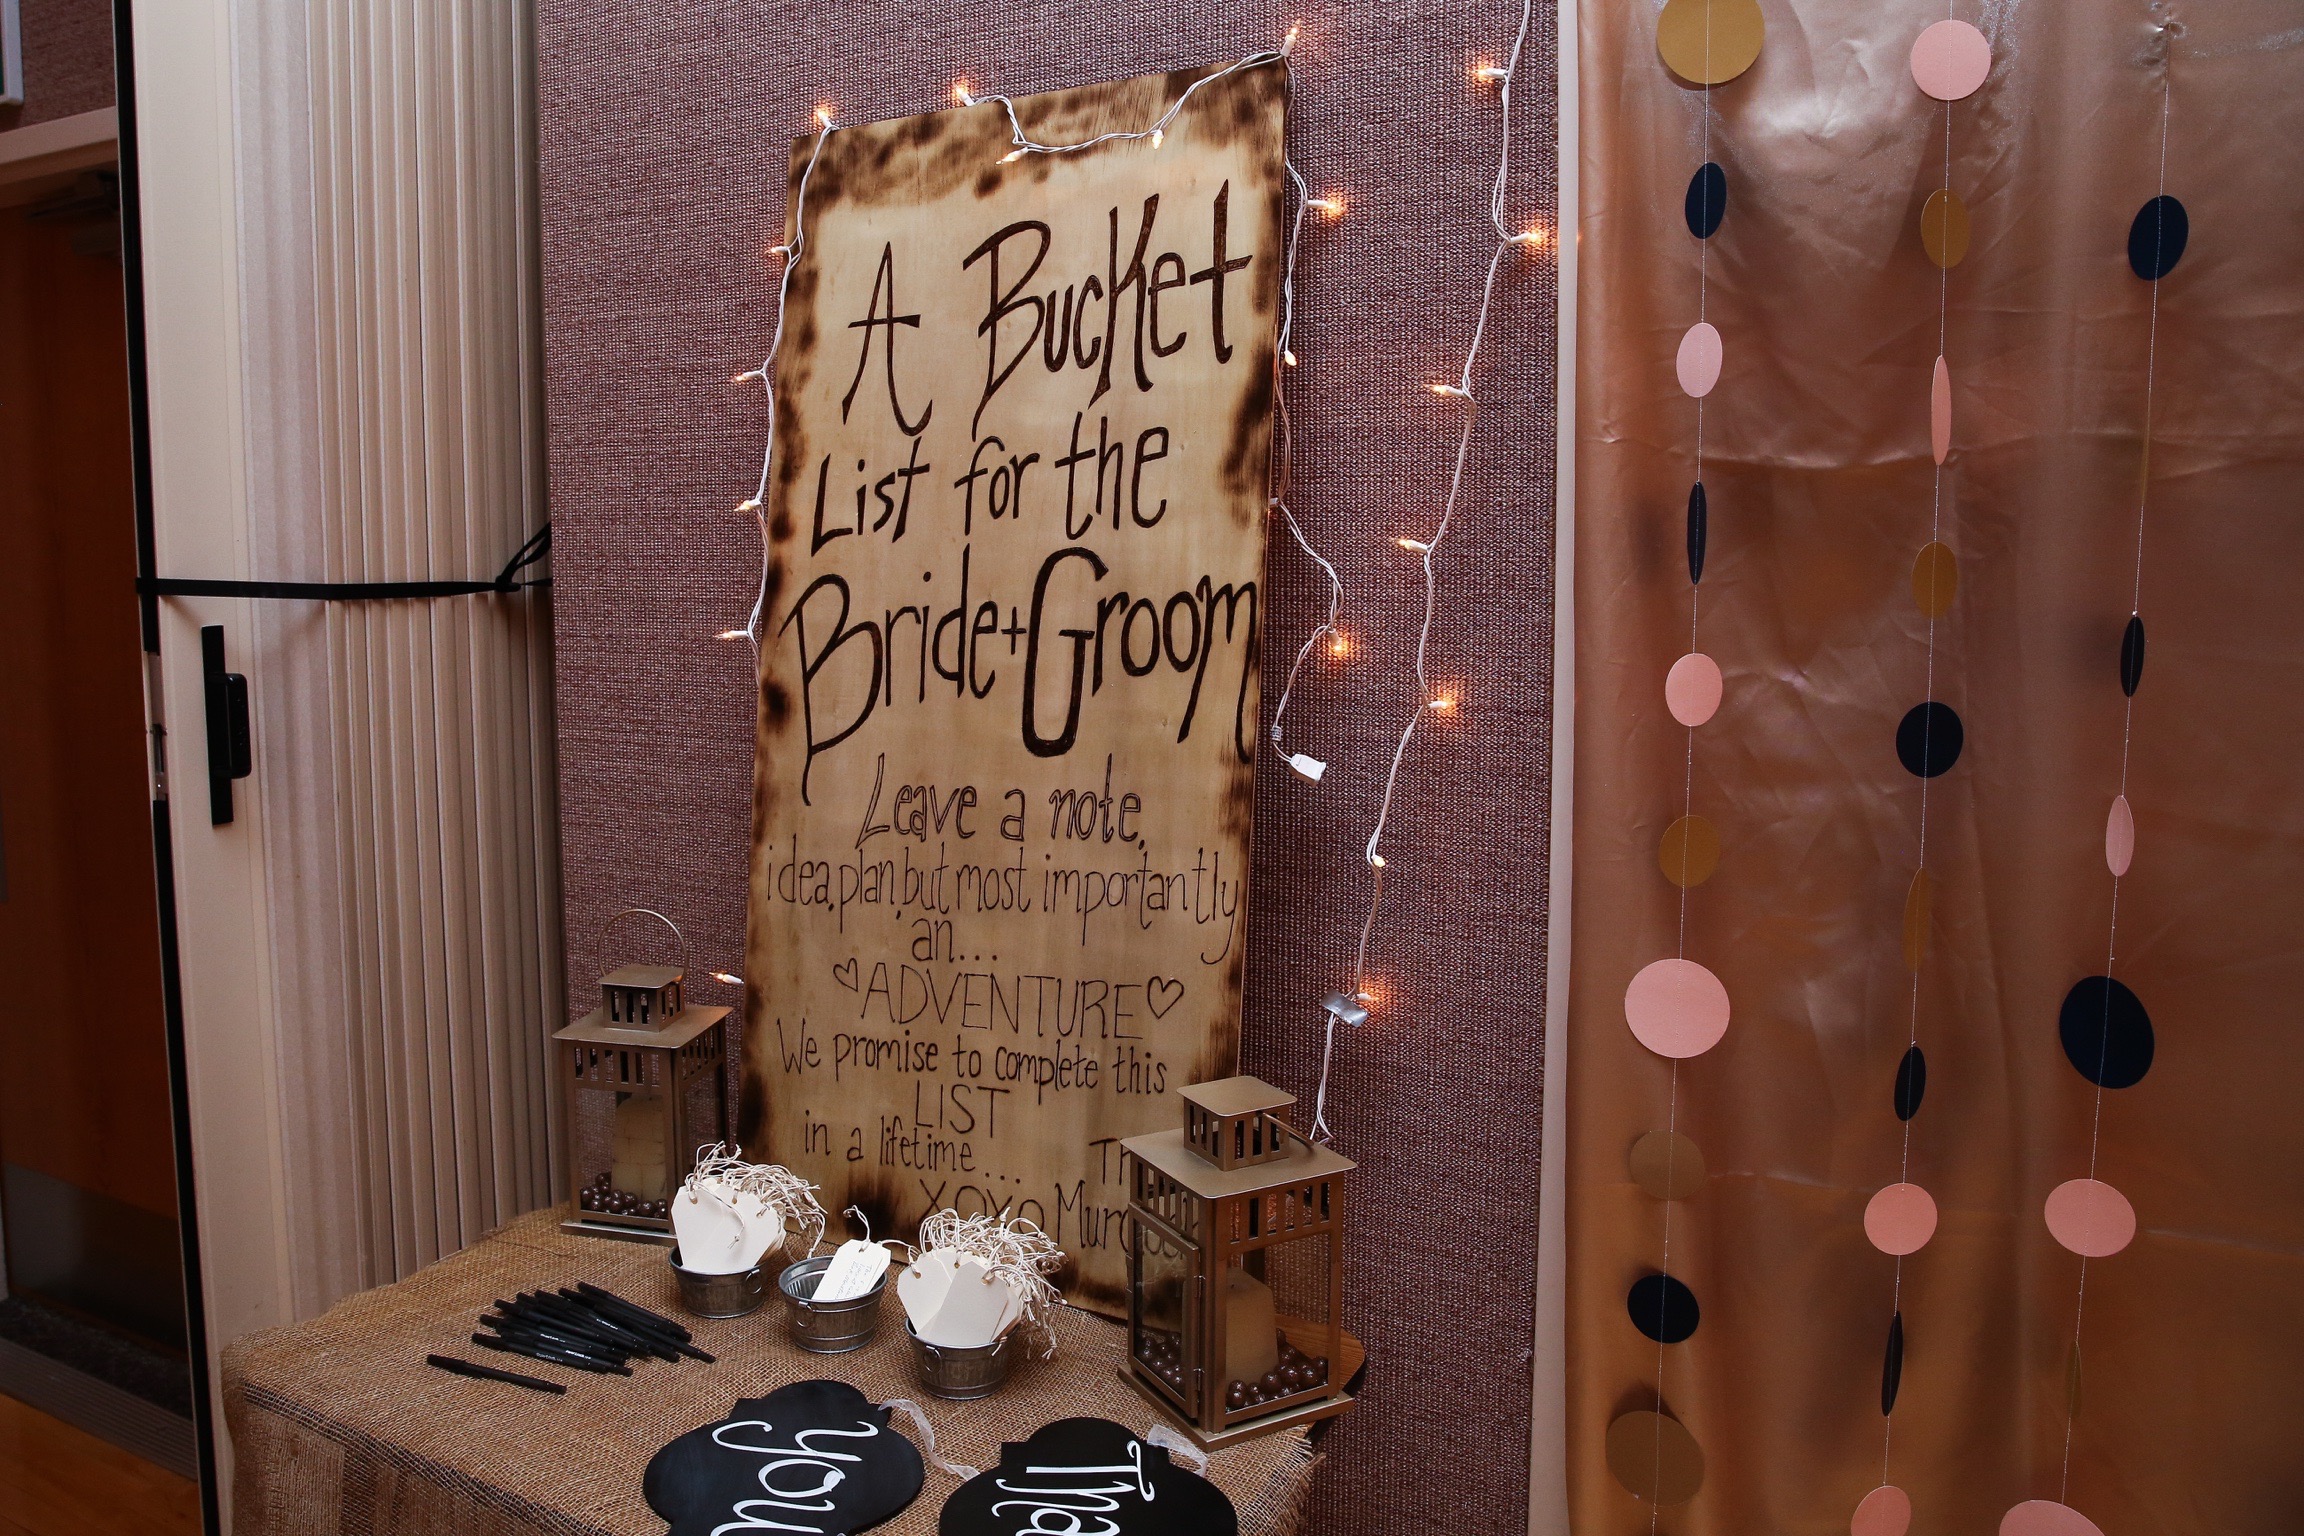 A Bucket
List for the
Bride + Groom
Leave a note,
idea, plan, but most importantly
an...
♡ADVENTURE♡
We promise to complete this
LIST
in a lifetime...
XOXO
you